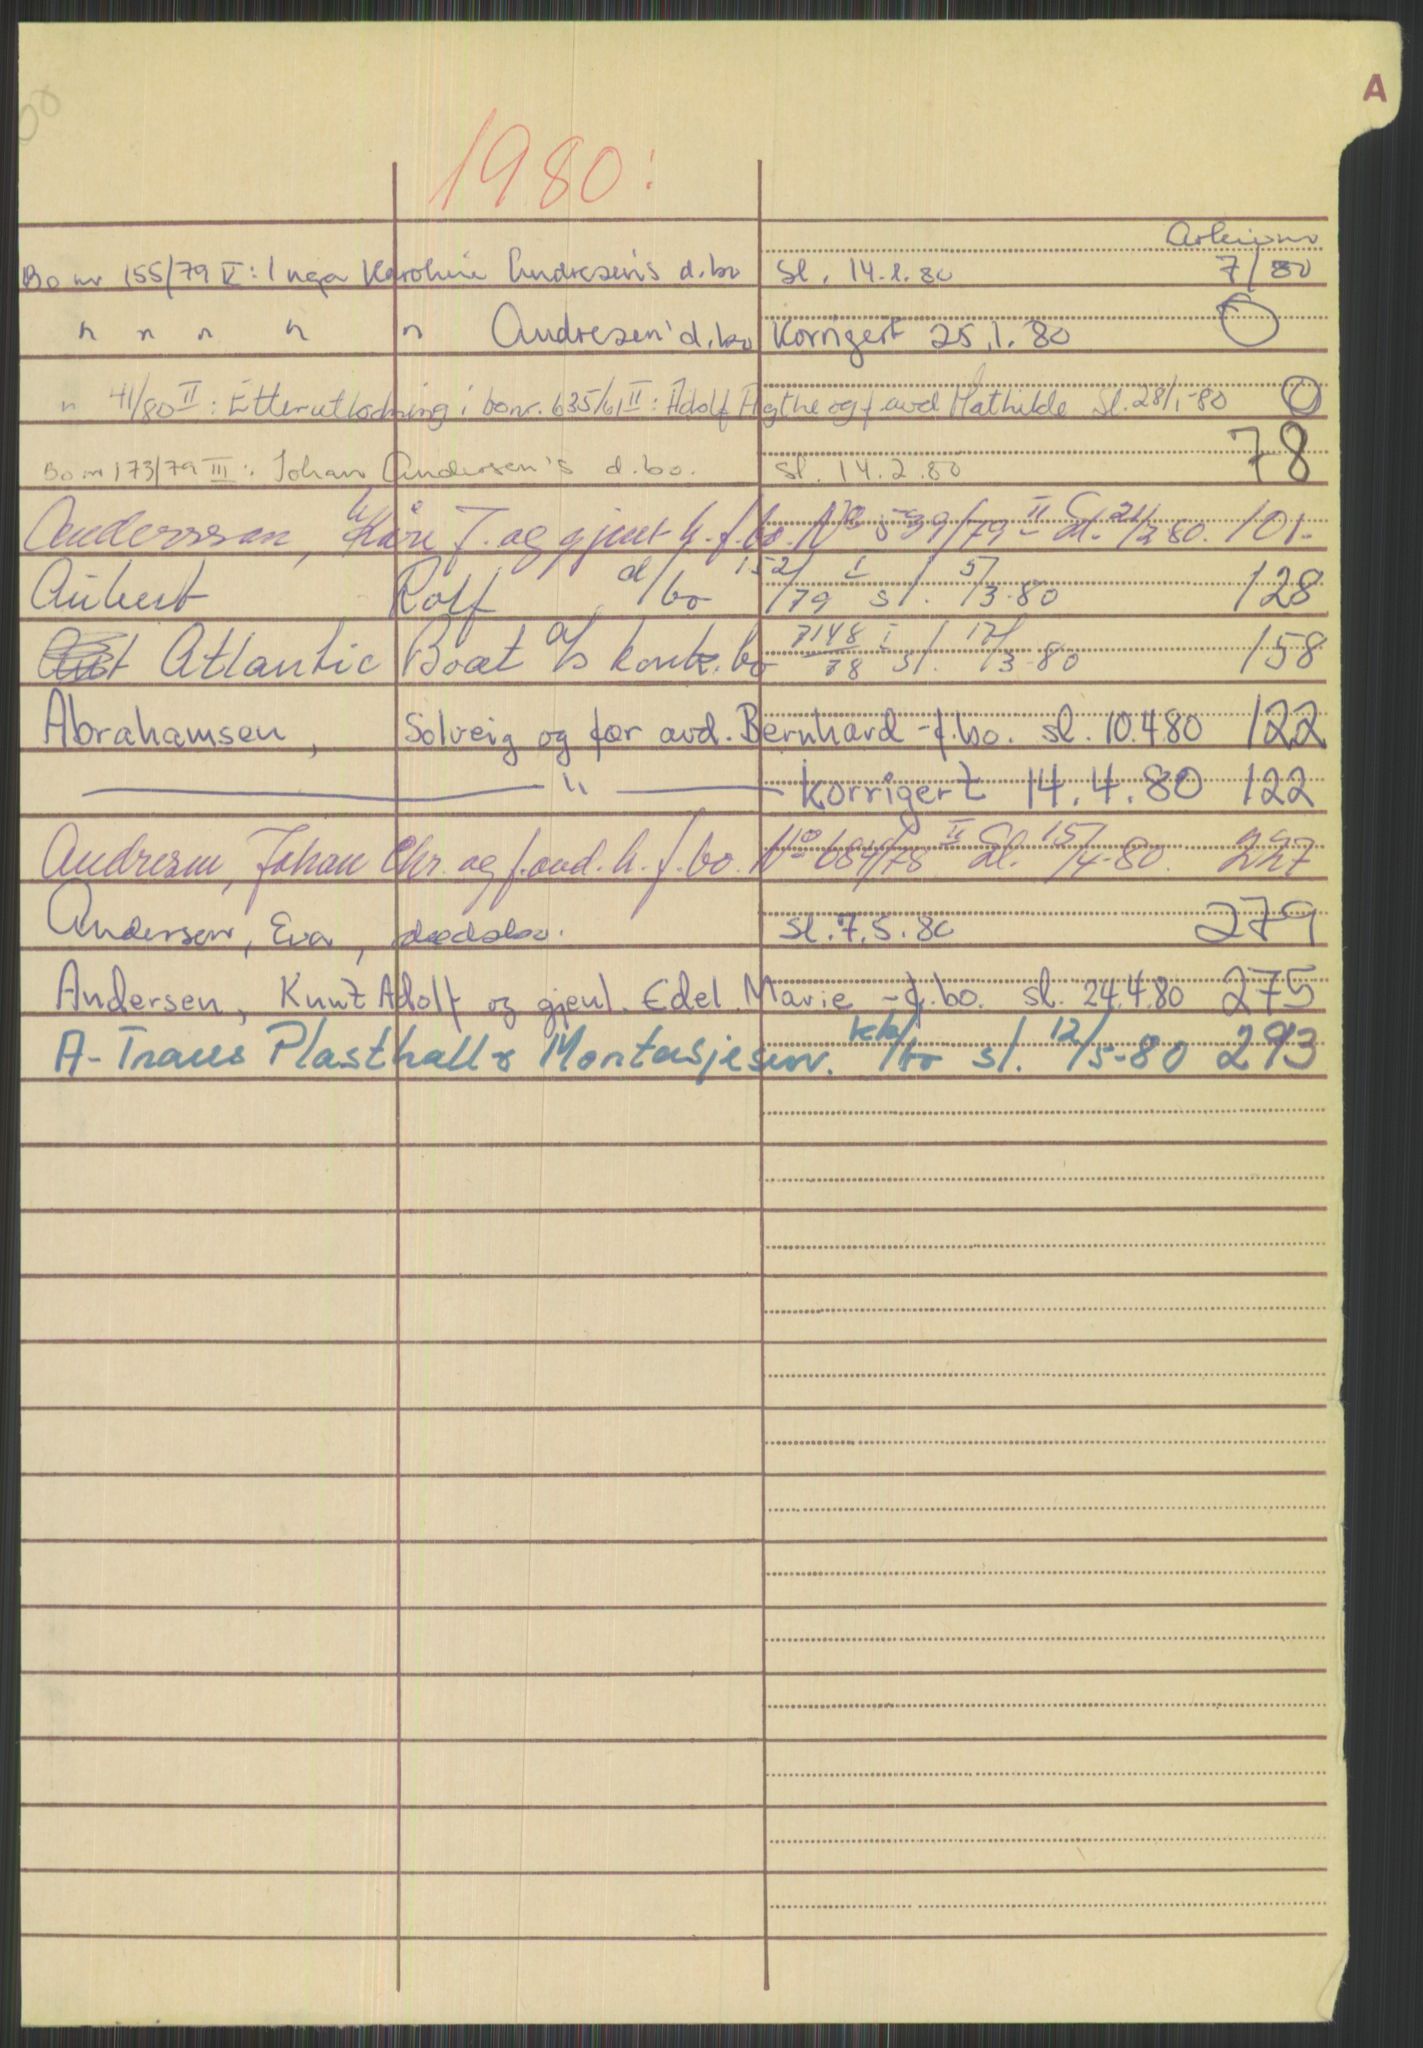 A
1980:
Arkivnr
Bo nr 155/79 V: Inga Karoline Andresen's d.bo sl. 14.1.80 7/80
" " " " " Andresen' d.bo Korrigert 25.1.80 O
" 41/80 II: Etterutlodning i bonr. 635/61 II: Adolf Agthe og f. avd Mathilde Sl. 28/1-80 O
Bo nr 173/79 III: Johan Andersen's d.bo. sl. 14.2.80 78
Anderssen, Kåre J. og gjenl. h. f.bo. No 539/79 II Sl. 21/2 80. 101.
Aubert Rolf d/bo 152/79 I sl. 5/3-80 128
Atlantic Boat a/s konk. bo 7148/78 I sl. 17/3-80 158
Abrahamsen, Solveig og før avd. Bernhard - f.bo. sl. 10.4 80 122
— " — korrigert 14.4.80 122
Andresen, Johan Chr. og f.avd. h. f.bo. No 684/78 II Sl. 15/4-80. 227
Andersen, Eva, dødsbo. sl. 7.5.80 279
Andersen, Knut Adolf og gjenl. Edel Marie - f.bo. sl. 24.4.80 275
A-Traus Plasthall & Montasjeserv. kk/bo sl. 12/5-80 293